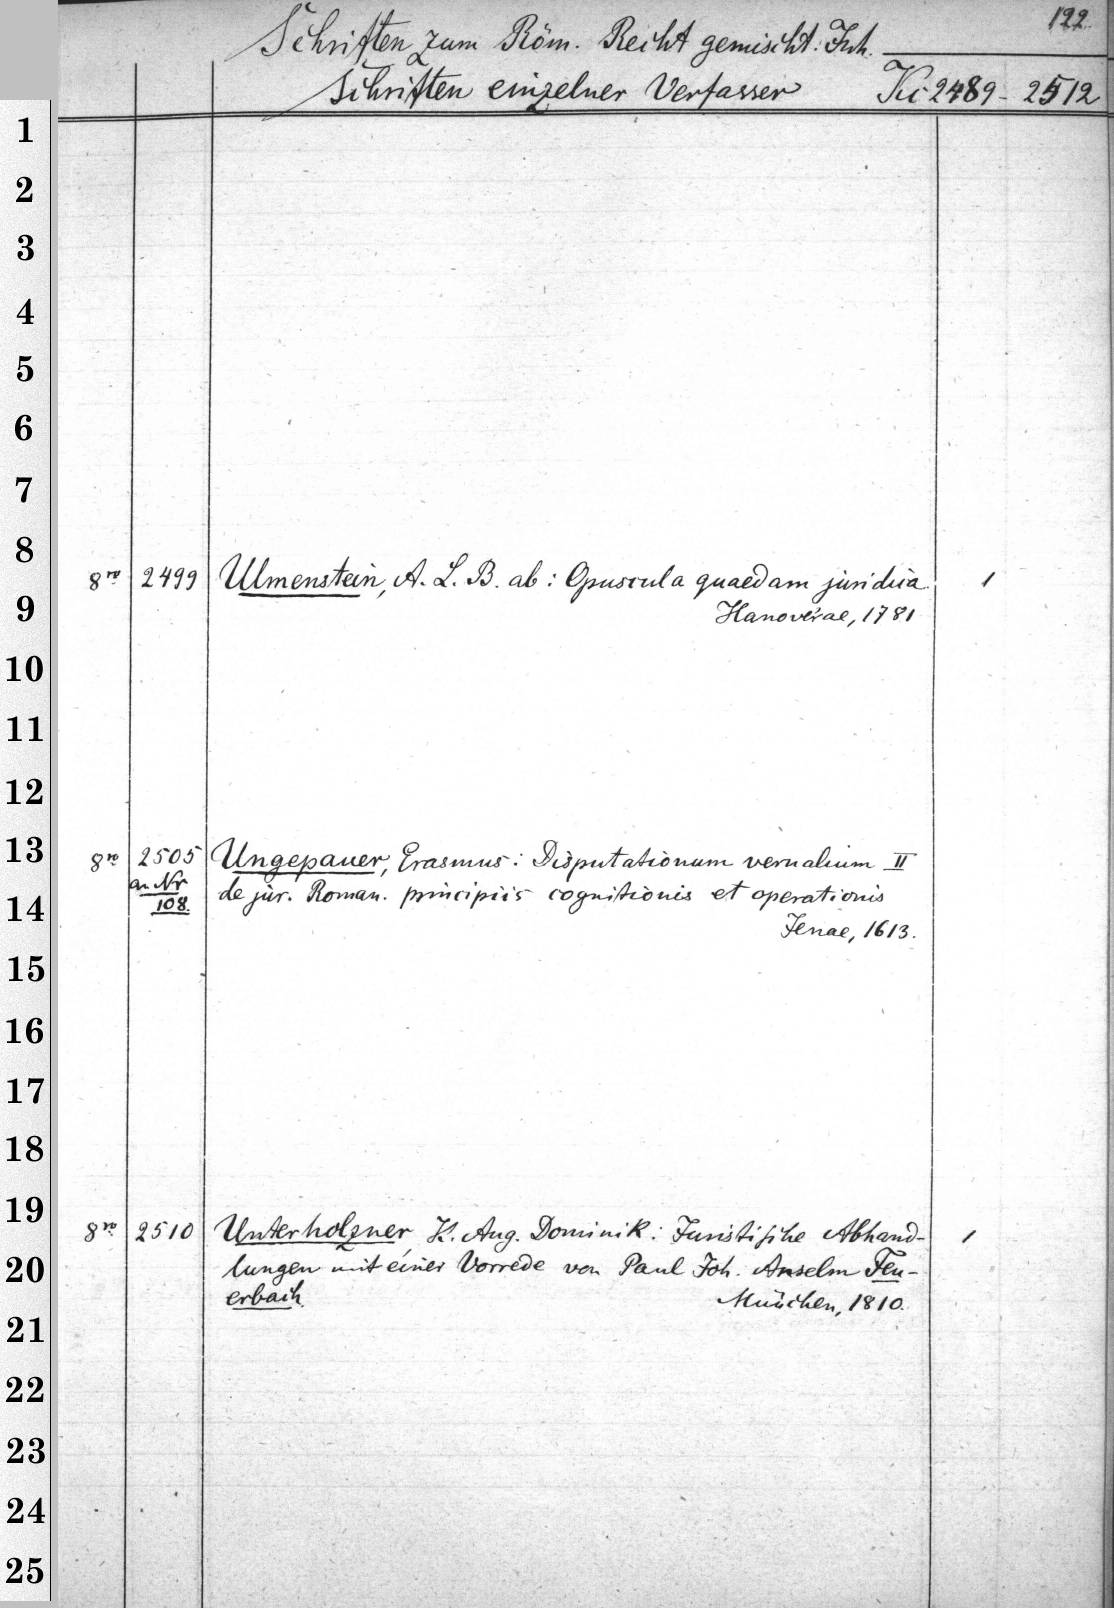 122.
Schriften zum Röm. Recht gemischt. Inh.
Schriften einzelner Verfasser Kc 2489 - 2512
1
2
3
4
5
6
7
8
8vo 2499 Ulmenstein, A. L. B. ab: Opuscula quaedam juridica 1
9
Hanoverae, 1781
10
11
12
13
8vo 2505 Ungepauer, Erasmus: Disputationum vernalium II
an Nr de jur. Roman. principiis cognitionis et operationis
14
108.
Jenae, 1613.
15
16
17
18
19
8vo 2510 Unterholzner, K. Aug. Dominik: Juristische Abhand- 1
20
lungen mit einer Vorrede von Paul Joh. Anselm Feu-
erbach. München, 1810.
21
22
23
24
25